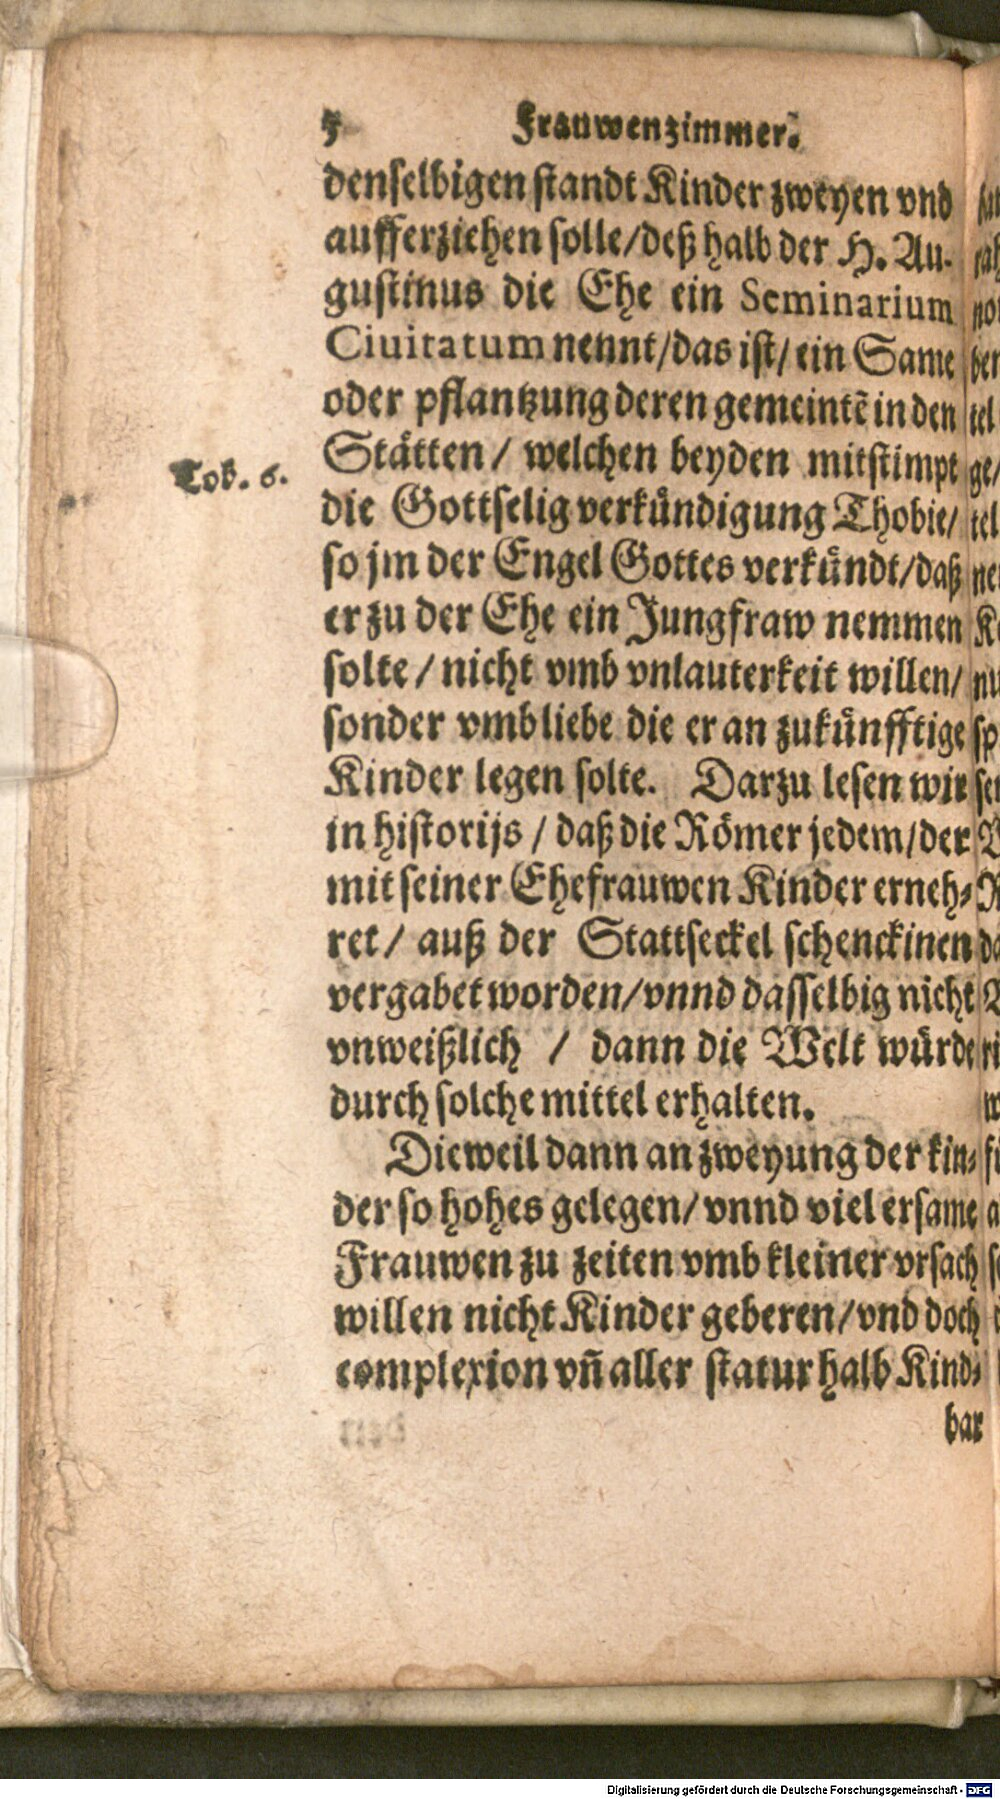 5 Frauwenzimmer.
denselbigen standt Kinder zweyen vnd
aufferziehen solle/deßhalb der H. Au-
gustinus die Ehe ein Seminarium
Ciuitatum nennt/das ist/ein Same
oder pflantzung deren gemeintē in den
Stätten/ welchen beyden mitstimpt
Tob. 6.
die Gottselig verkündigung Thobie/
so jm der Engel Gottes verkündt/daß
er zu der Ehe ein Jungfraw nemmen
solte/nicht vmb vnlauterkeit willen/
sonder vmb liebe die er an zukünfftige
Kinder legen solte. Darzu lesen wir
in historijs/ daß die Römer jedem/der
mit seiner Ehefrauwen Kinder erneh-
ret/ auß der Stattseckel schenckinen
vergabet worden/vnnd dasselbig nicht
vnweißlich / dann die Welt würde
durch solche mittel erhalten.
Dieweil dann an zweyung der kin-
der so hohes gelegen/vnnd viel ersame
Frauwen zu zeiten vmb kleiner vrsach
willen nicht Kinder geberen/vnd doch
complexion vñ aller statur halb Kind-
bar
Digitalisierung gefördert durch die Deutsche Forschungsgemeinschaft - DFG